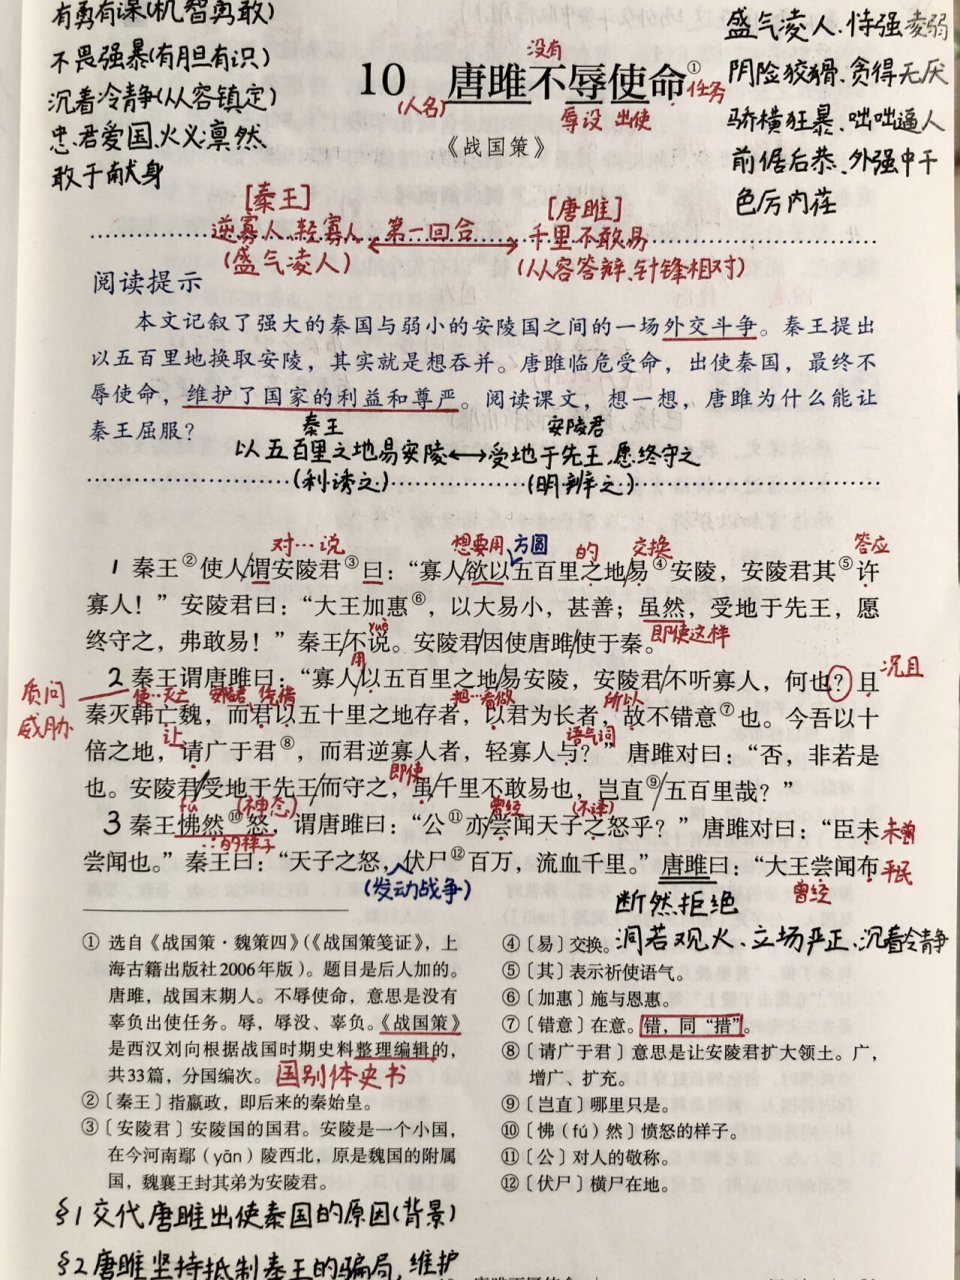 有勇有谋(机智勇敢)
不畏强暴(有胆有识)
沉着冷静(从容镇定)
忠君爱国.火义凛然
敢于献身
盛气凌人.恃强凌弱
阴险狡猾.贪得无厌
骄横狂暴、咄咄逼人
前倨后恭、外强中干
色厉内荏
没有
10 唐雎不辱使命①
(人名) 辱没 出使 任务
《战国策》
[秦王] [唐雎]
逆寡人、轻寡人 第一回合 千里不敢易
(盛气凌人) (从容答辩、针锋相对)
阅读提示
本文记叙了强大的秦国与弱小的安陵国之间的一场外交斗争。秦王提出
以五百里地换取安陵，其实就是想吞并。唐雎临危受命，出使秦国，最终不
辱使命，维护了国家的利益和尊严。阅读课文，想一想，唐雎为什么能让
秦王屈服？
秦王 安陵君
以五百里之地易安陵↔受地于先王.愿终守之
(利诱之) (明辨之)
对…说 想要用 方圆 的 交换 答应
1 秦王②使人/谓安陵君③曰：“寡人/欲以五百里之地/易④安陵，安陵君其⑤许
寡人！”安陵君曰：“大王加惠⑥，以大易小，甚善；虽然，受地于先王，愿
yuè 即使这样
终守之，弗敢易！”秦王/不说。安陵君/因使唐雎/使于秦。
用 况且
质问
威胁
2 秦王谓唐雎曰：“寡人/以五百里之地/易安陵，安陵君/不听寡人，何也？且
使…灭亡 安陵君 凭借 把…看做 所以
秦灭韩亡魏，而君以五十里之地存者，以君为长者，故不错意⑦也。今吾以十
让 语气词
倍之地，请广于君⑧，而君逆寡人者，轻寡人与？”唐雎对曰：“否，非若是
即使
也。安陵君/受地于先王/而守之，虽/千里不敢易也，岂直⑨/五百里哉？”
fú (神态) 曾经 (不译)
3 秦王怫然⑩怒，谓唐雎曰：“公⑪亦/尝闻天子之怒乎？”唐雎对曰：“臣未
…的样子 未曾
尝闻也。”秦王曰：“天子之怒，伏尸⑫百万，流血千里。”唐雎曰：“大王尝闻布
(发动战争) 曾经 平民
断然拒绝
洞若观火、立场严正、沉着冷静
① 选自《战国策·魏策四》（《战国策笺证》，上
海古籍出版社2006年版）。题目是后人加的。
唐雎，战国末期人。不辱使命，意思是没有
辜负出使任务。辱，辱没、辜负。《战国策》
是西汉刘向根据战国时期史料整理编辑的，
共33篇，分国编次。国别体史书
②〔秦王〕指嬴政，即后来的秦始皇。
③〔安陵君〕安陵国的国君。安陵是一个小国，
在今河南鄢（yān）陵西北，原是魏国的附属
国，魏襄王封其弟为安陵君。
④〔易〕交换。
⑤〔其〕表示祈使语气。
⑥〔加惠〕施与恩惠。
⑦〔错意〕在意。错，同“措”。
⑧〔请广于君〕意思是让安陵君扩大领土。广，
增广、扩充。
⑨〔岂直〕哪里只是。
⑩〔怫（fú）然〕愤怒的样子。
⑪〔公〕对人的敬称。
⑫〔伏尸〕横尸在地。
§1 交代唐雎出使秦国的原因(背景)
§2 唐雎坚持抵制秦王的骗局，维护